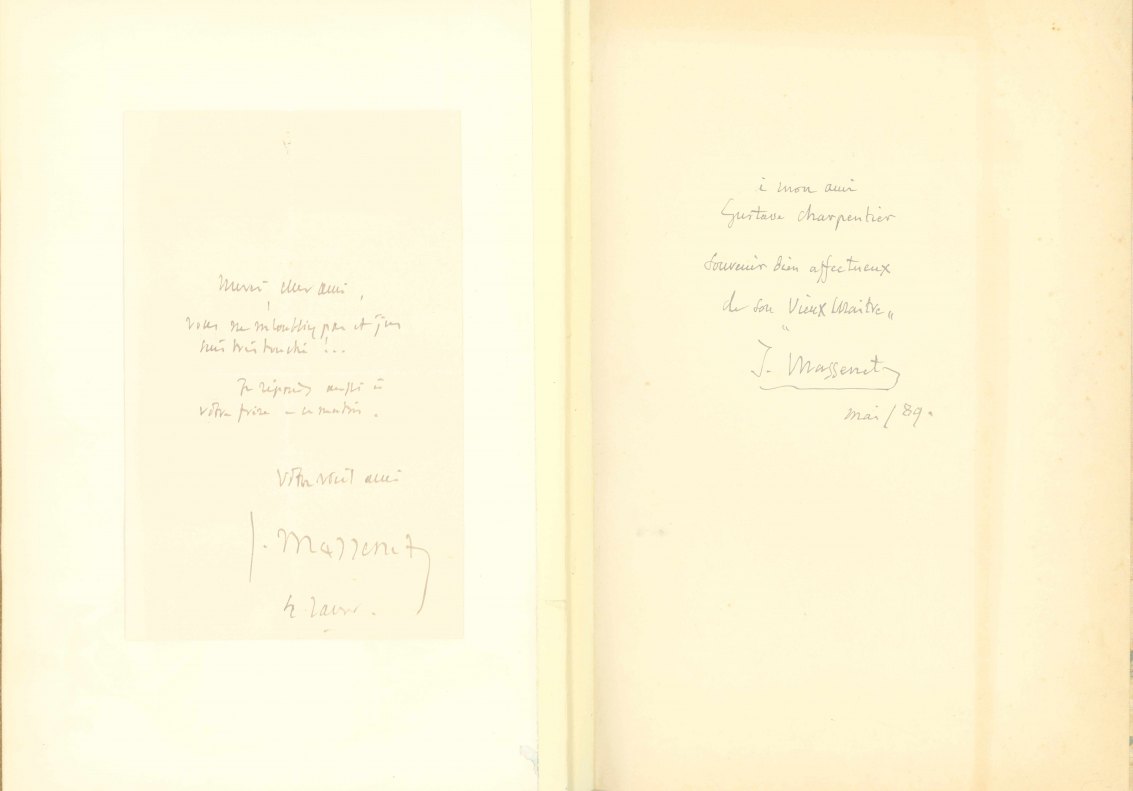 Merci cher ami,
vous ne m'oubliez pas et j'en
suis très touché !...
Je réponds aussi à
votre frère - ce matin.
Votre vieil ami
J. Massenet
à mon ami
Gustave Charpentier
Souvenir bien affectueux
de son "Vieux Maître"
J. Massenet
mai / 89.